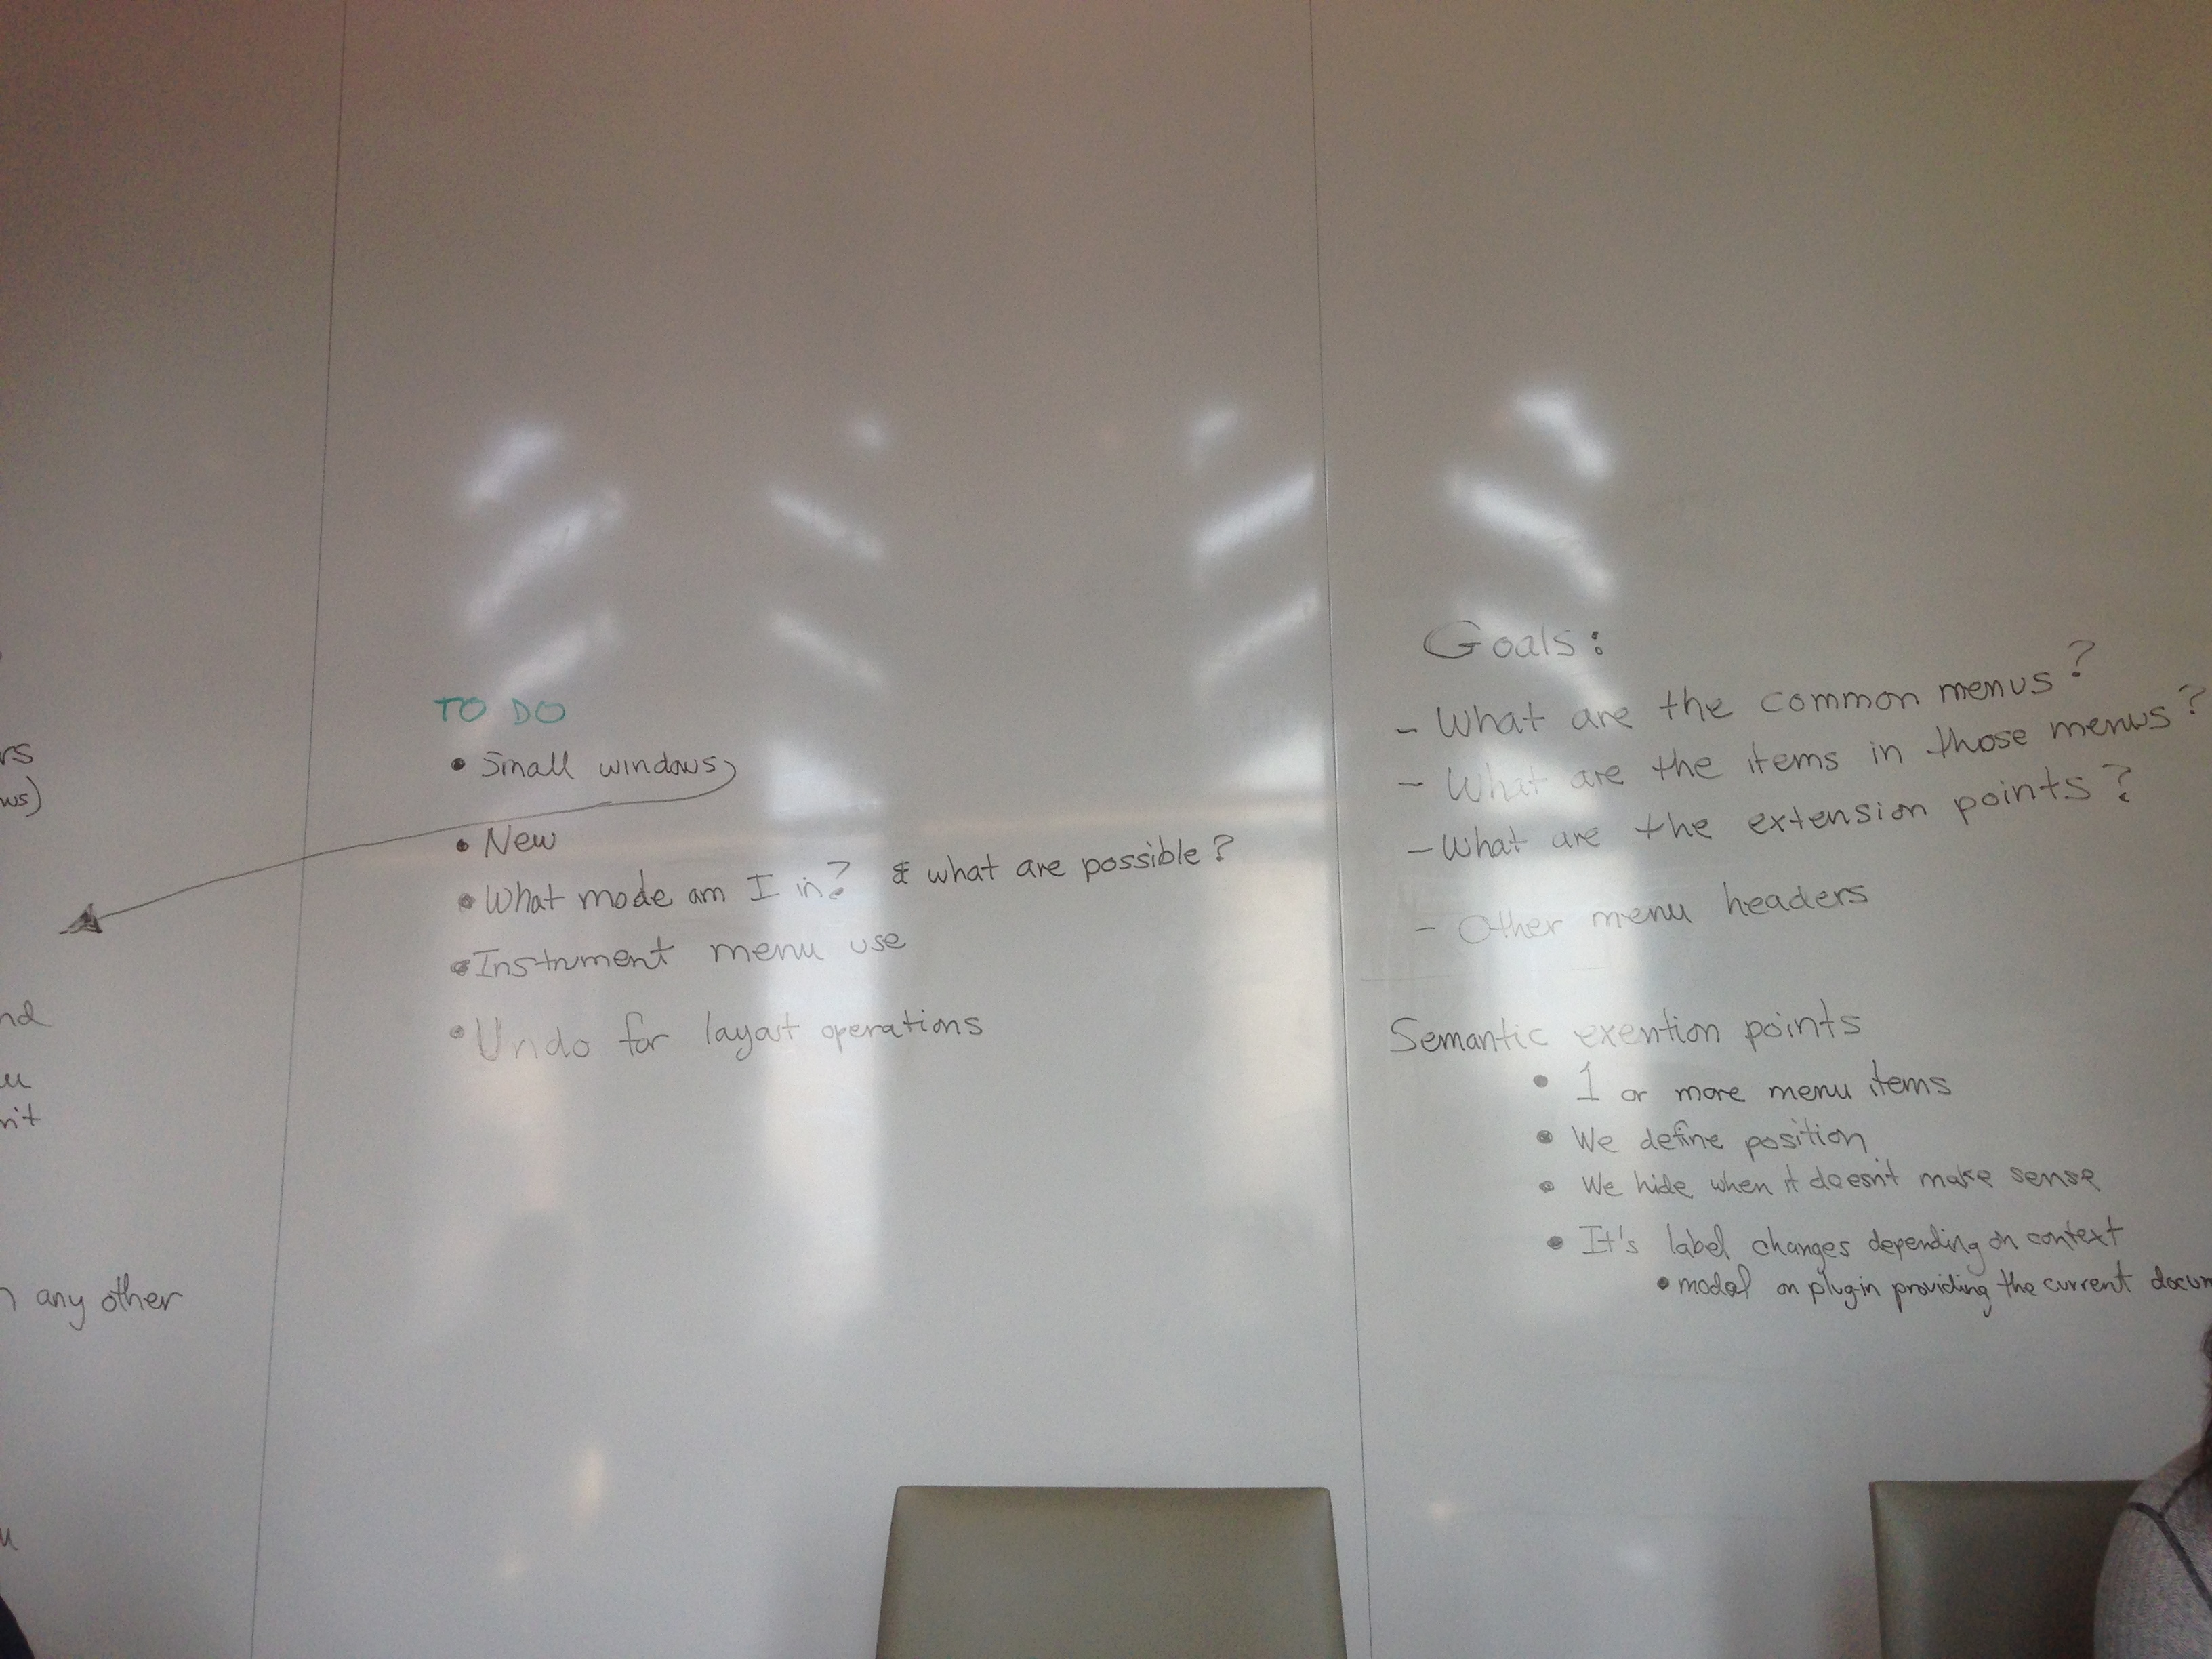 rs
ws)
nd
u
n't
n any other
u
TO DO
• Small windows
• New
• What mode am I in? & what are possible?
• Instrument menu use
• Undo for layout operations
Goals:
- What are the common menus?
- What are the items in those menus?
- What are the extension points?
- Other menu headers
Semantic exention points
• 1 or more menu items
• We define position
• We hide when it doesn't make sense
• It's label changes depending on context
• model on plugin providing the current docum